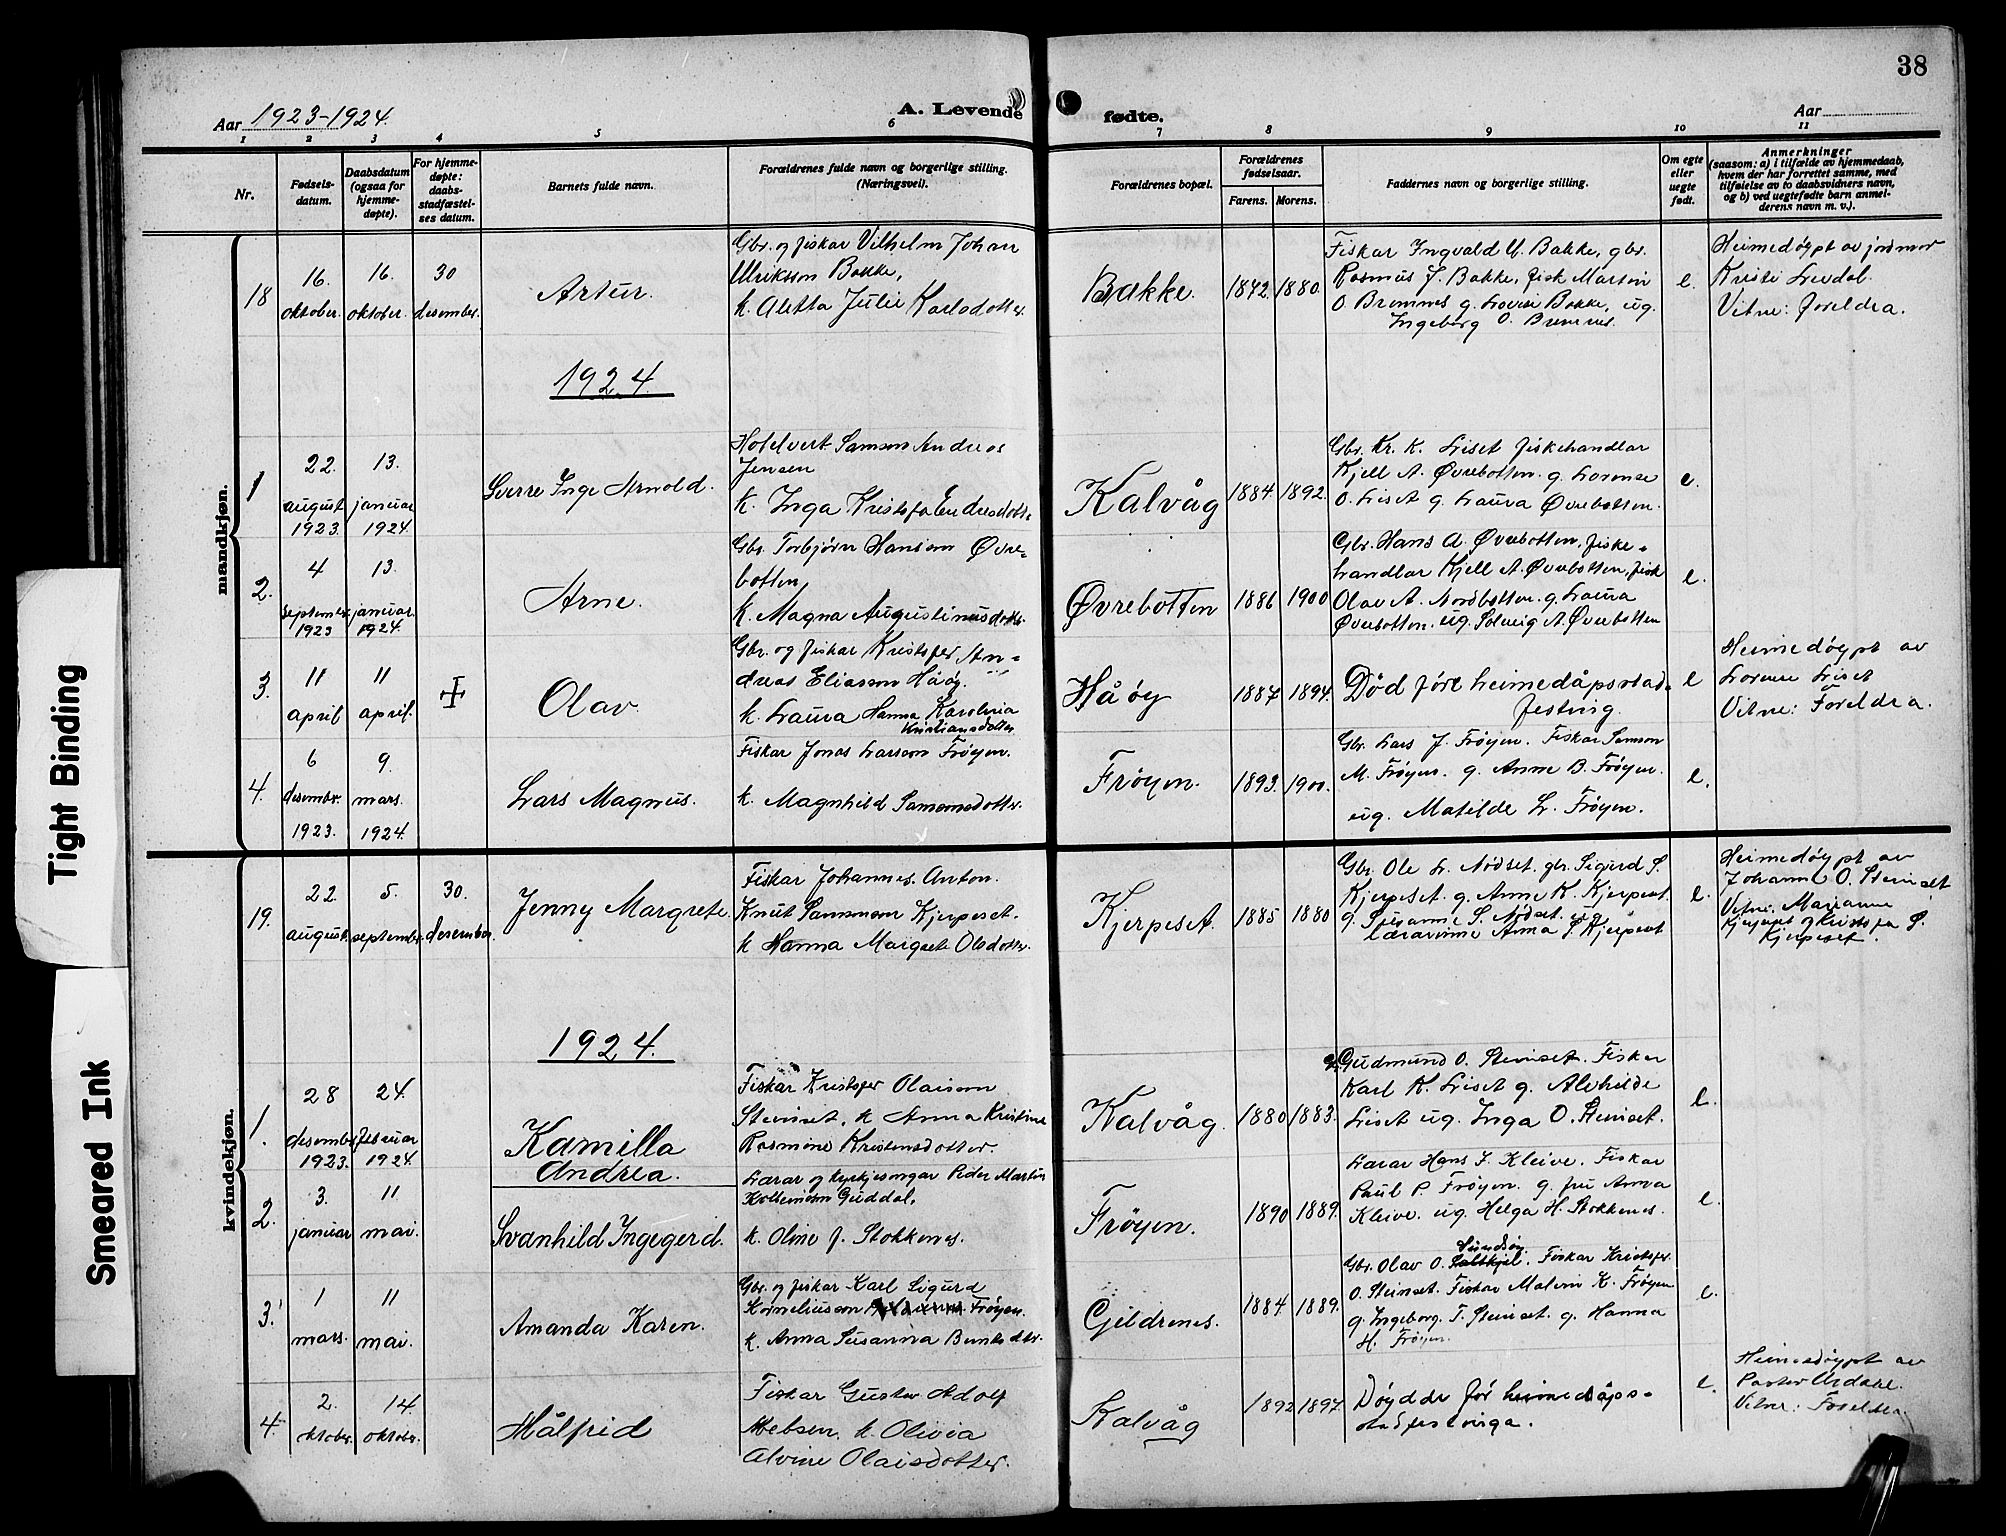 38
Aar 1923-1924.
A. Levende fødte.
Aar
1 2 3 4 5 6 7 8 9 10 11
Nr.
Fødsels-
datum.
Daabsdatum
(ogsaa for
hjemme-
døpte).
For hjemme-
døpte:
daabs-
stadfæstel-
ses datum.
Barnets fulde navn.
Forældrenes fulde navn og borgerlige stilling.
(Næringsvei).
Forældrenes bopæl.
Forældrenes
fødselsaar.
Farens. Morens.
Faddernes navn og borgerlige stilling.
Om egte
eller
uegte
født.
Anmerkninger
(saasom: a) i tilfælde av hjemmedaab,
hvem der har forrettet samme, med
tilføielse av to daabsvidners navn,
og b) ved uegtefødte barn anmel-
derens navn m. v.).
mandkjøn.
18
16.
oktober.
16.
oktober.
30
desember.
Artur.
Gbr. og fiskar Vilhelm Johan
Ulriksson Bakke,
k. Aletta Julie Karlsdotter.
Bakke.
1842. 1880.
Fiskar Ingvald U. Bakke, gbr.
Rasmus J. Bakke, fisk Martin
O. Bremnes g. Lovise Bakke, ug.
Ingeborg O. Bremnes.
e.
Heimedøypt av jordmor
Kristi Levdal.
Vitne: foreldra.
1924.
1
22.
august
1923.
13.
januar
1924.
Sverre Inge Arnold.
Hotelvert Samson Andreas
Jensen
k. Inga Kristofa Endresdott.
Kalvåg
1884. 1892.
Gbr. Kr. K. Liset fiskehandlar
Kjell A. Øvrebotten. g. Lorense
O. Liset g. Laura Øvrebotten.
e.
2.
4
september
1923
13.
januar
1924.
Arne.
Gbr. Torbjørn Hansson Øvre-
botten,
k. Magna Augustinusdotter.
Øvrebotten
1886 1900
Gbr. Hans A. Øvrebotten, fiske-
handlar Kjell A. Øvrebotten, fisk
Olav A. Nordbotten. g. Laura
Øvrebotten. ug. Solveig A. Øvrebotten
e.
3.
11
april
11
april.
Olav.
Gbr. og fiskar Kristofer An-
dreas Eliasson Håøy.
k. Laura Hanna Karolina
Kristiansdotter
Håøy
1887 1894.
Død före heimedåpsstad-
festing.
e
Heimedøypt av
Lorense Liset
Vitne: Foreldra.
4.
6
desembr.
1923.
9.
mars.
1924.
Lars Magnus.
Fiskar Jonas Larsson Frøyen.
k. Magnhild Samsonsdotter.
Frøyen.
1893. 1900.
Gbr. Lars J. Frøyen. Fiskar Samson
M. Frøyen. g. Anne B. Frøyen.
ug. Matilde L. Frøyen.
e.
kvindekjøn.
19.
22.
august.
5.
september.
30.
desember.
Jenny Margrete.
Fiskar Johannes Anton.
Knut Samsonson Kjerpeset.
k Hanna Margret Olsdotter.
Kjerpeset.
1885 1880
Gbr. Ole L. Nødset. gbr Sigurd S.
Kjerpeset. g. Anne K. Kjerpeset.
g. Susanne S. Nødset. ug.
lærarinne Anna S. Kjerpeset
e.
Heimedøypt av
Johanne O. Steinset
Vitne: Marianne
Kjerpeset og Kristofa S.
Kjerpeset.
1924.
1.
28
desember
1923.
24.
februar
1924.
Kamilla
Andrea.
Fiskar Kristofer Olaison
Steinset. k Anna Kristine
Rasmine Kristensdotter.
Kalvåg.
1880 1883.
Gudmund O. Steinset. Fiskar
Karl K. Liset g. Alvhilde
Liset ug. Inga O. Steinset.
e.
2.
3.
januar
11
mai.
Svanhild Ingegerd.
Lærar og kyrkjesongar Peder Martin
Guddal,
k. Oline J. Stokkenes.
Frøyen.
1890 1889.
Lærar Hans J. Kleive. Fiskar
Paul P. Frøyen. g. fru Anna
Kleive. ug. Helga H. Stokkenes.
e.
3.
1
mars.
11
mai.
Amanda Karen.
Gbr. og fiskar Karl Sigurd
Korneliusson Frøyen.
k. Anna Susanna Berntsdtr.
Gildrenes.
1884 1889.
Gbr. Olav O. Fiskar Kristofer
O. Steinset. Fiskar Malvin K. Frøyen
g. Ingeborg T. Steinset. g. Hanna
H. Frøyen.
e.
4.
2.
oktober.
14.
oktober.
Målfrid
Fiskar Gustav Adolf
Mebsen. k. Olivia
Alvine Olaisdotter.
Kalvåg
1892 1897.
Døydde før heimedåps-
stadfestinga.
e.
Heimedøypt av
Pastor Årdahl.
Vitne: Foreldra.
Tight Binding
Smeared Ink